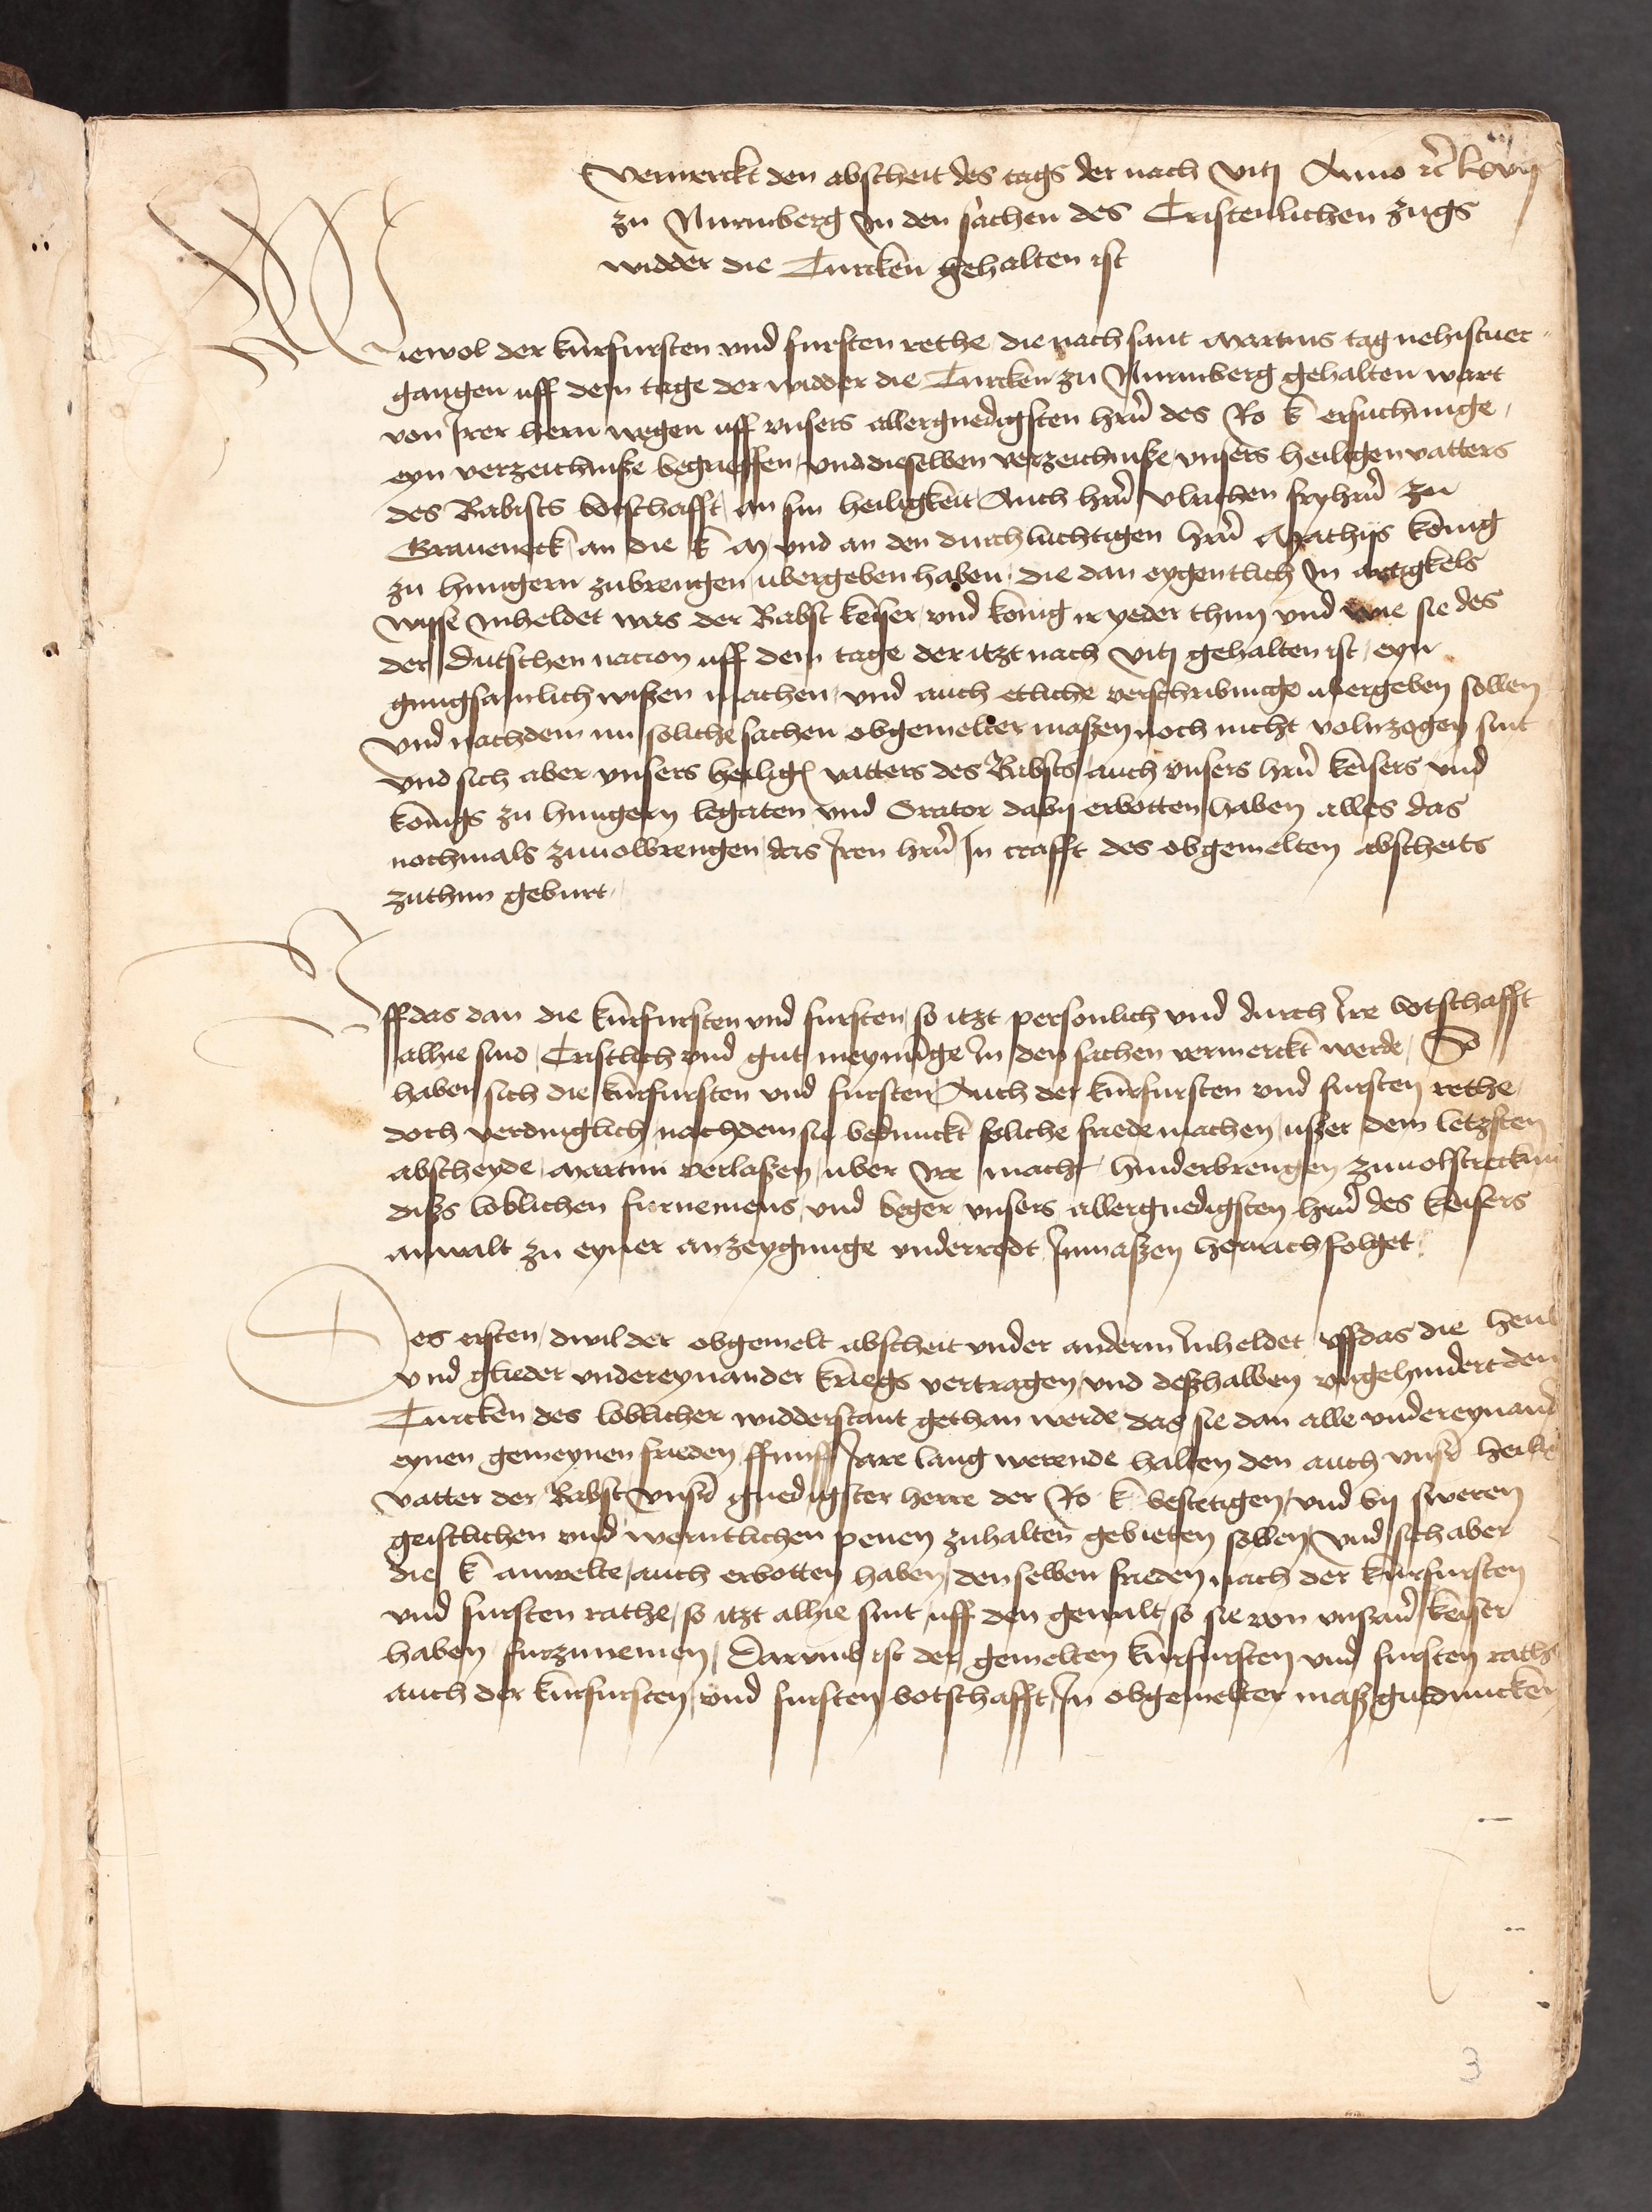 iij
Vermerckt den abscheit des tags der nach viti Anno rc lxvij
zu Nurmberg In den sachen des Cristenlichen zugs
widder die Turcken gehalten ist
Wiewol der kurfursten vnd fursten rethe die nach sant martins tag nehistuer
gangen uff dem tage der widder die Turcken zu Nurmberg gehalten wart
von Irer hern wegen uff vnsers allergnedigsten hrn des Ro k ersuchunge
eyn verzeichniße begrieffen vnd dieselben verzeichniße vnsers heiligen vatters
des Babists botschafft an sin heiligkeit Auch hrn vlrichen fryhrn zu
Graueneck an die k m vnd an den durchluchtigen hrn Mathijs konig
zu hungern zubrengen ubergeben haben die dan eygentlich In artigkels
wyse Inheldet was der Babst keyser vnd konig ir yeder thun vnd wie sie des
der dutschen nacion uff dem tage der itzt nach viti gehalten ist eyn
gnugsamlich wißen machen vnd auch etliche verschribunge ubergeben sollen
vnd nachdem nu soliche sachen obgemelter maßen noch nicht volnzogen sint
vnd sich aber vnsers heilig vatters des Babsts auch vnsers hrn keisers vnd
konigs zu hungern legaten vnd Orator daby erbotten haben alles das
nochmals zuuolbrengen das Iren hrn In crafft des obgemelten abscheits
zuthun geburt
Uffdas dan die kurfursten vnd fursten so itzt personlich vnd durch Ire botschafft
alhie sind Cristlich vnd gut meynunge In den sachen vermerckt werde So
haben sich die kurfursten vnd fursten Auch der kurfursten vnd fursten rethe
doch verdinglich nachdem sie bedunckt soliche friede machen ußer dem letzsten
abscheyde martini verlaßen uber Ire macht hinderbrengen zuuolstreckung
diß loblichen furnemens vnd beger vnsers allergnedigsten hrn des keisers
anwalt zu eyner anzeygunge vnderredt Inmaßen hernach folget
Des ersten dwil der obgemelt abscheit vnder anderm Inheldet uffdas die heub
vnd glieder vndereynander kriegs vertragen vnd deßhalben vngehindert den
Turcken des loblicher widderstant gethan werde das sie dan alle vndereynand
eynen gemeynen frieden ffunff Jare lang werende halten den auch vnsr heilig
vatter der Babst vnsr gnedigster herre der Ro k bestetigen vnd by sweren
geistlichen vnd werntlichen penen zuhalten gebieten sollen vnd sich aber
die k anwelte auch erbotten haben denselben frieden nach der kurfursten
vnd fursten rathe so itzt alhie sint uff den gewalt so sie von vnserm keiser
haben furzunemen Darumb ist der gemelten kurfursten vnd fursten rath
auch der kurfursten vnd fursten botschafft In obgemelter maß gutduncken
3